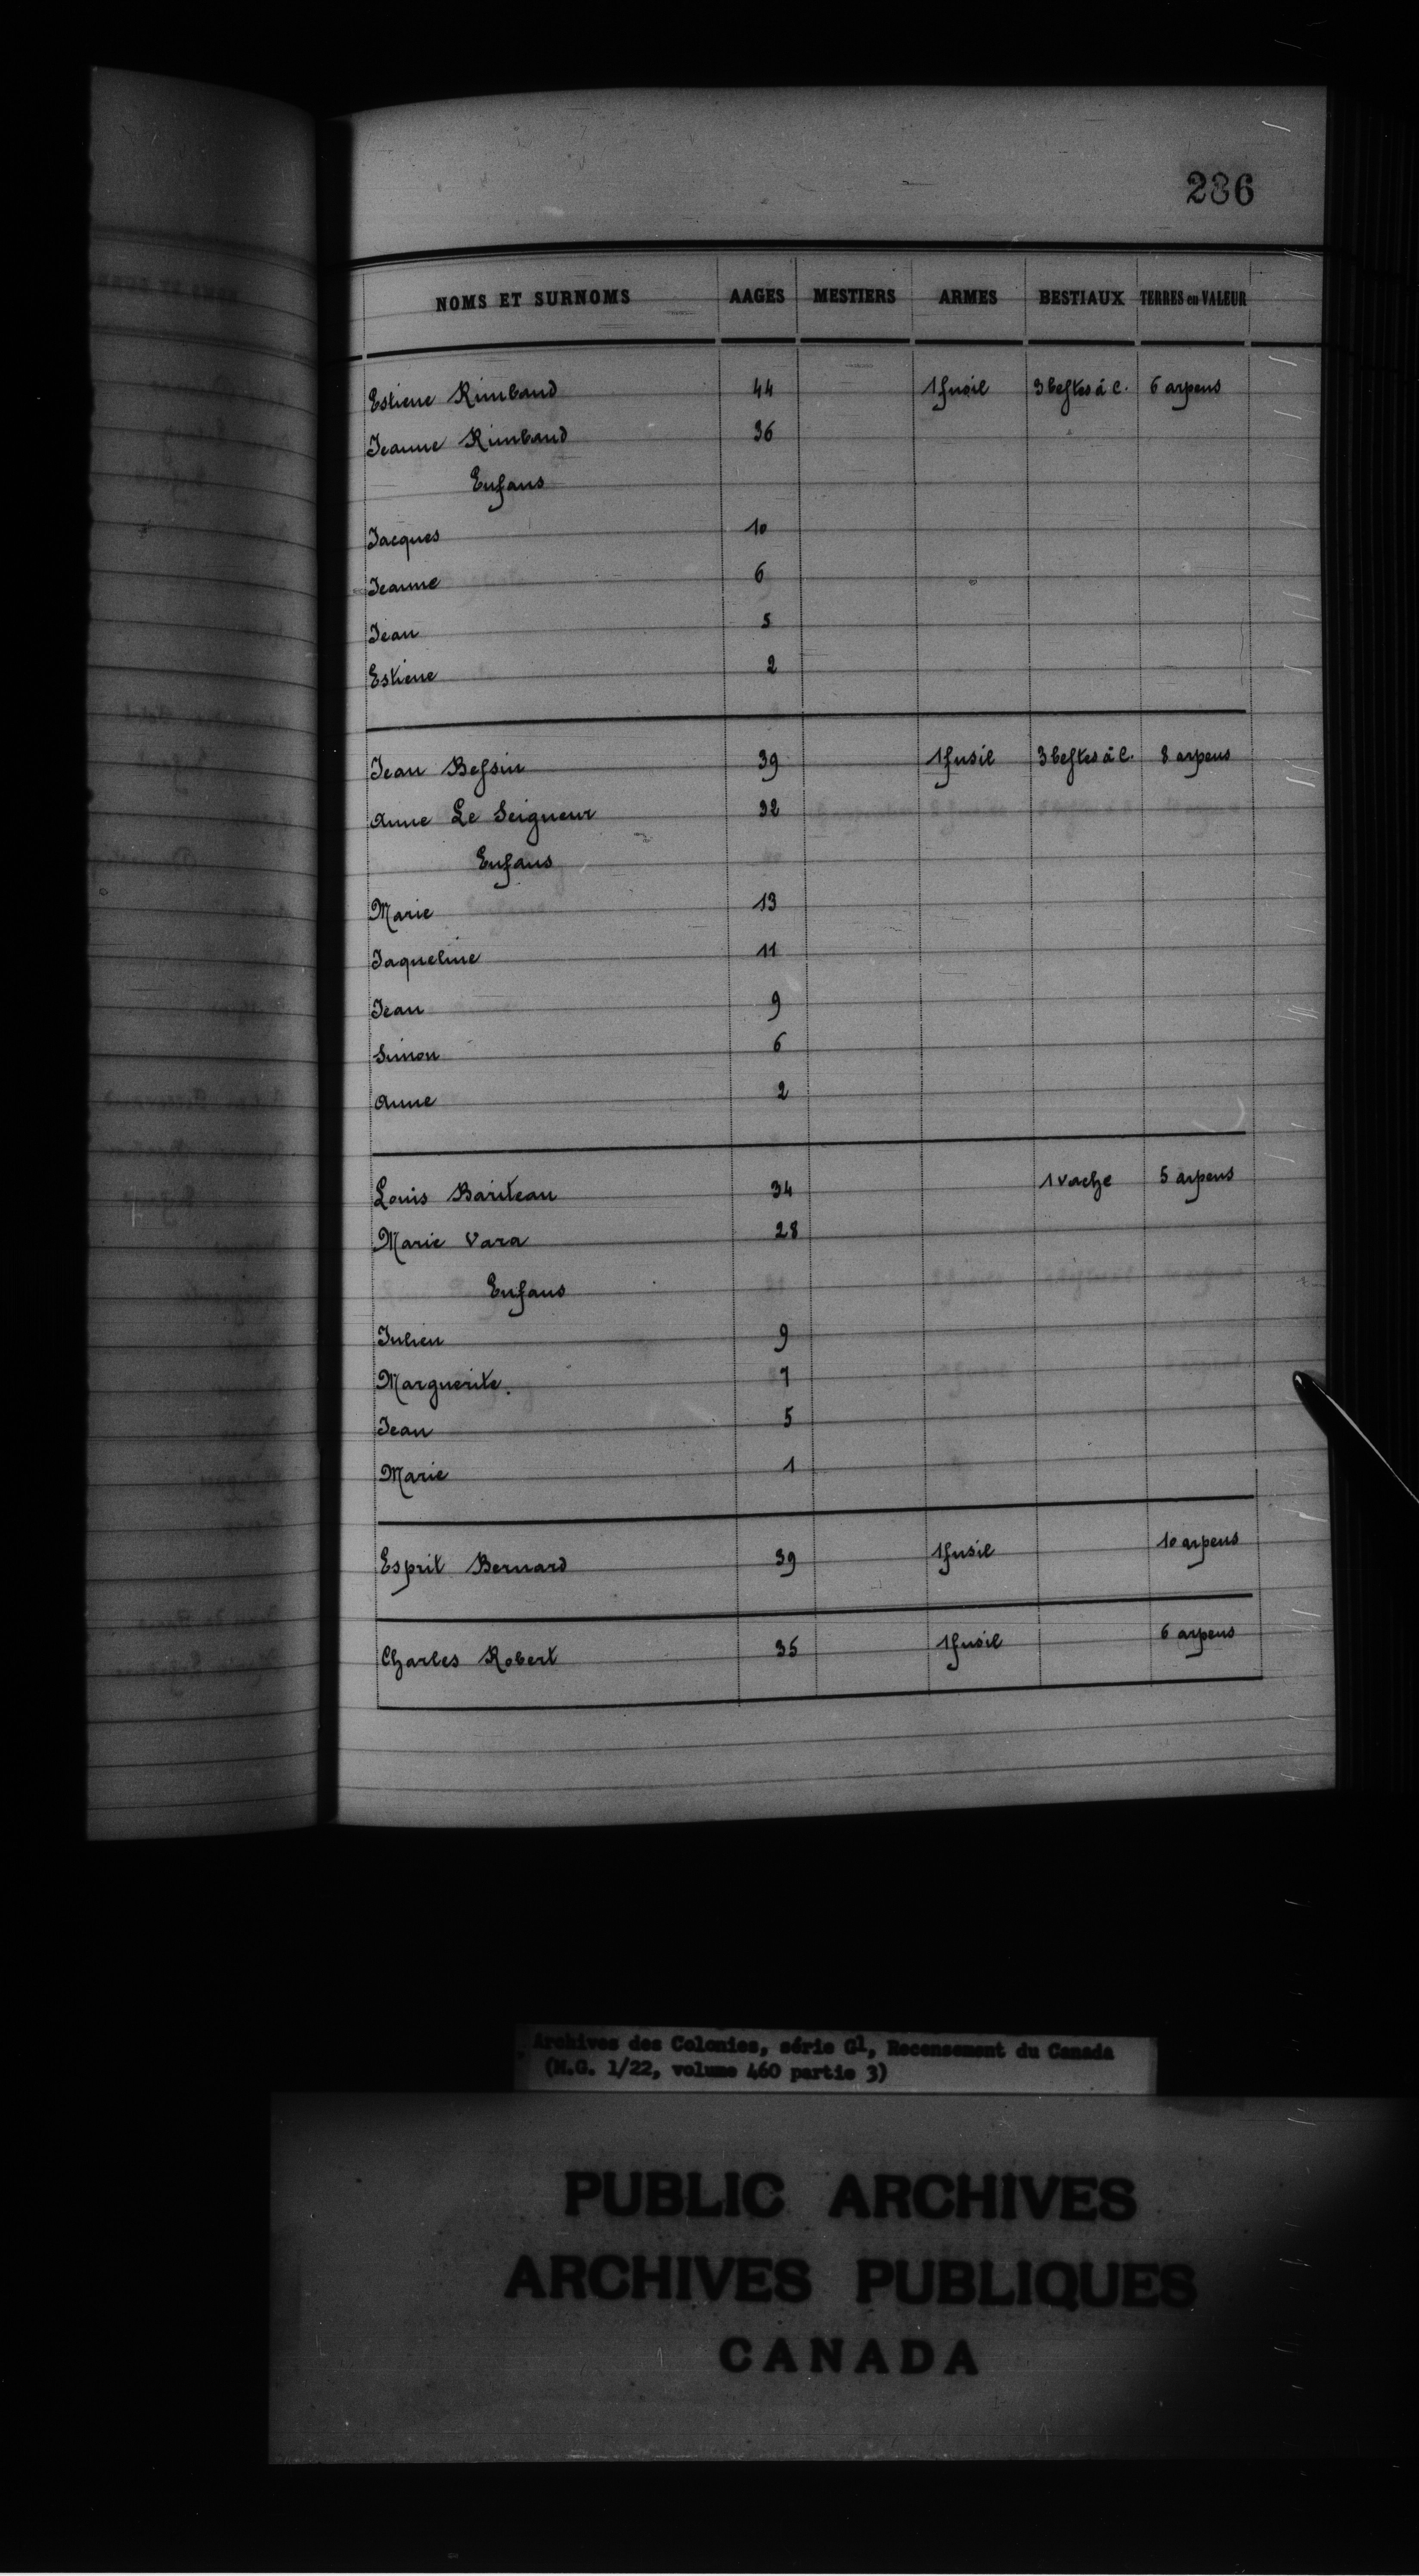 286
NOMS ET SURNOMS AAGES MESTIERS ARMES BESTIAUX TERRES en VALEUR
Estiene Rimbaud 44 1 fusil 3 bestes à c. 6 arpens
Jeanne Rimbaud 36
Enfans
Jacques 10
Jeanne 6
Jean 5
Estiene 2
Jean Bessin 39 1 fusil 3 bestes à c. 8 arpens
Anne Le Seigneur 32
Enfans
Marie 13
Jaqueline 11
Jean 9
Simon 6
Anne 2
Louis Bariteau 34 1 vache 5 arpens
Marie Vara 28
Enfans
Julien 9
Marguerite. 7
Jean 5
Marie 1
Esprit Bernard 39 1 fusil 10 arpens
Charles Robert 35 1 fusil 6 arpens
Archives des Colonies, série G1, Recensement du Canada
(M.G. 1/22, volume 460 partie 3)
PUBLIC ARCHIVES
ARCHIVES PUBLIQUES
CANADA